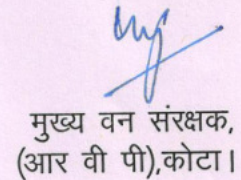 मुख्य वन संरक्षक,
(आर वी पी),कोटा।